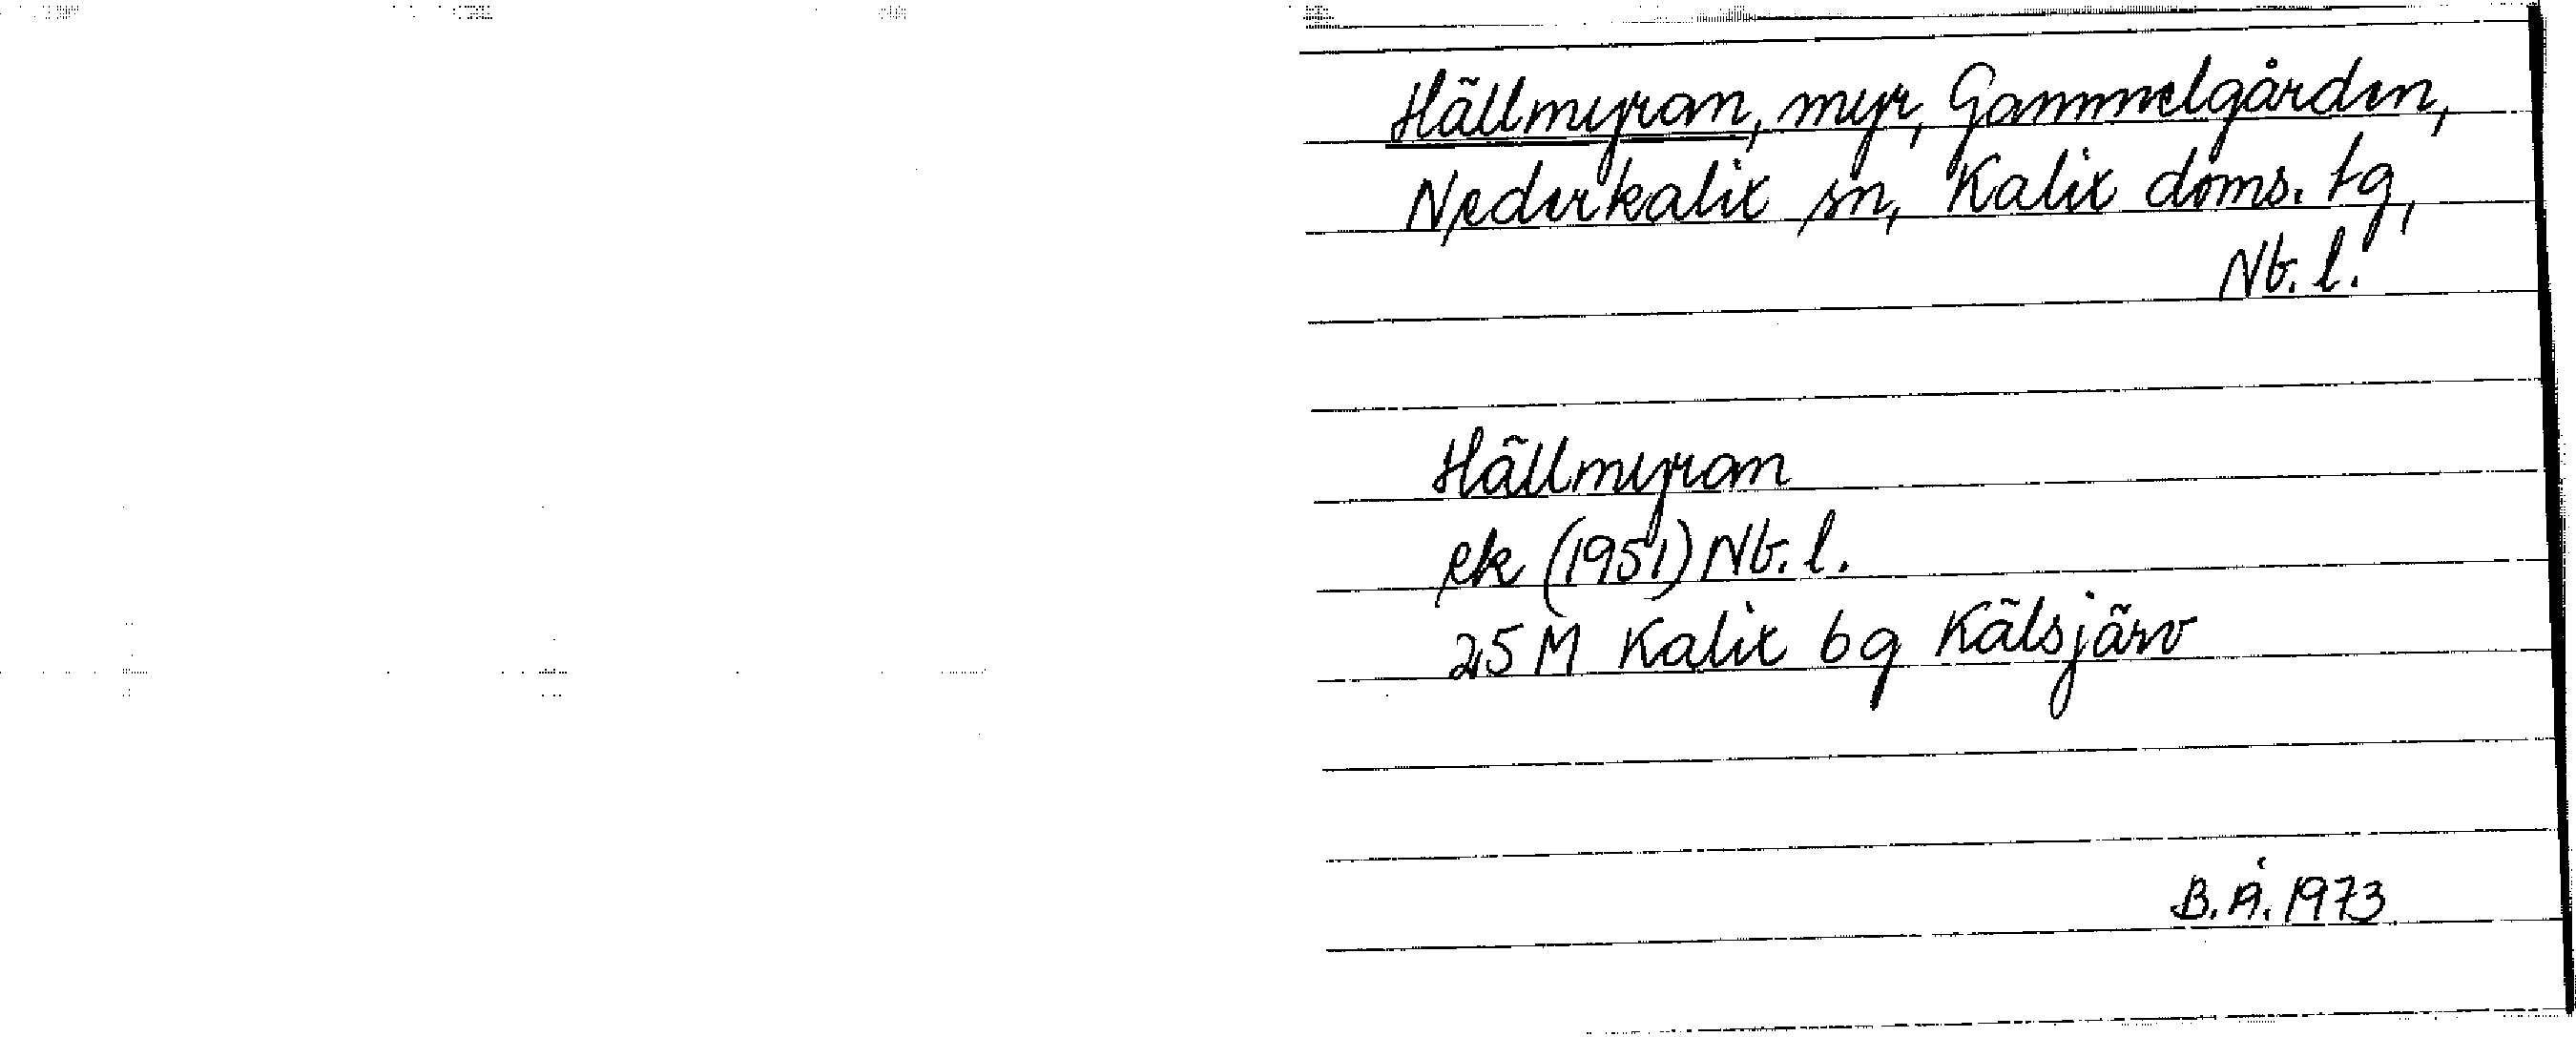 Hällmyran, myr, Gammelgården,
Nederkalix sn, Kalix doms. tg,
Nb. l.
Hällmyran
ek (1951) Nb. l.
25 M Kalix 6 g Kälsjärv
B. Å. 1973